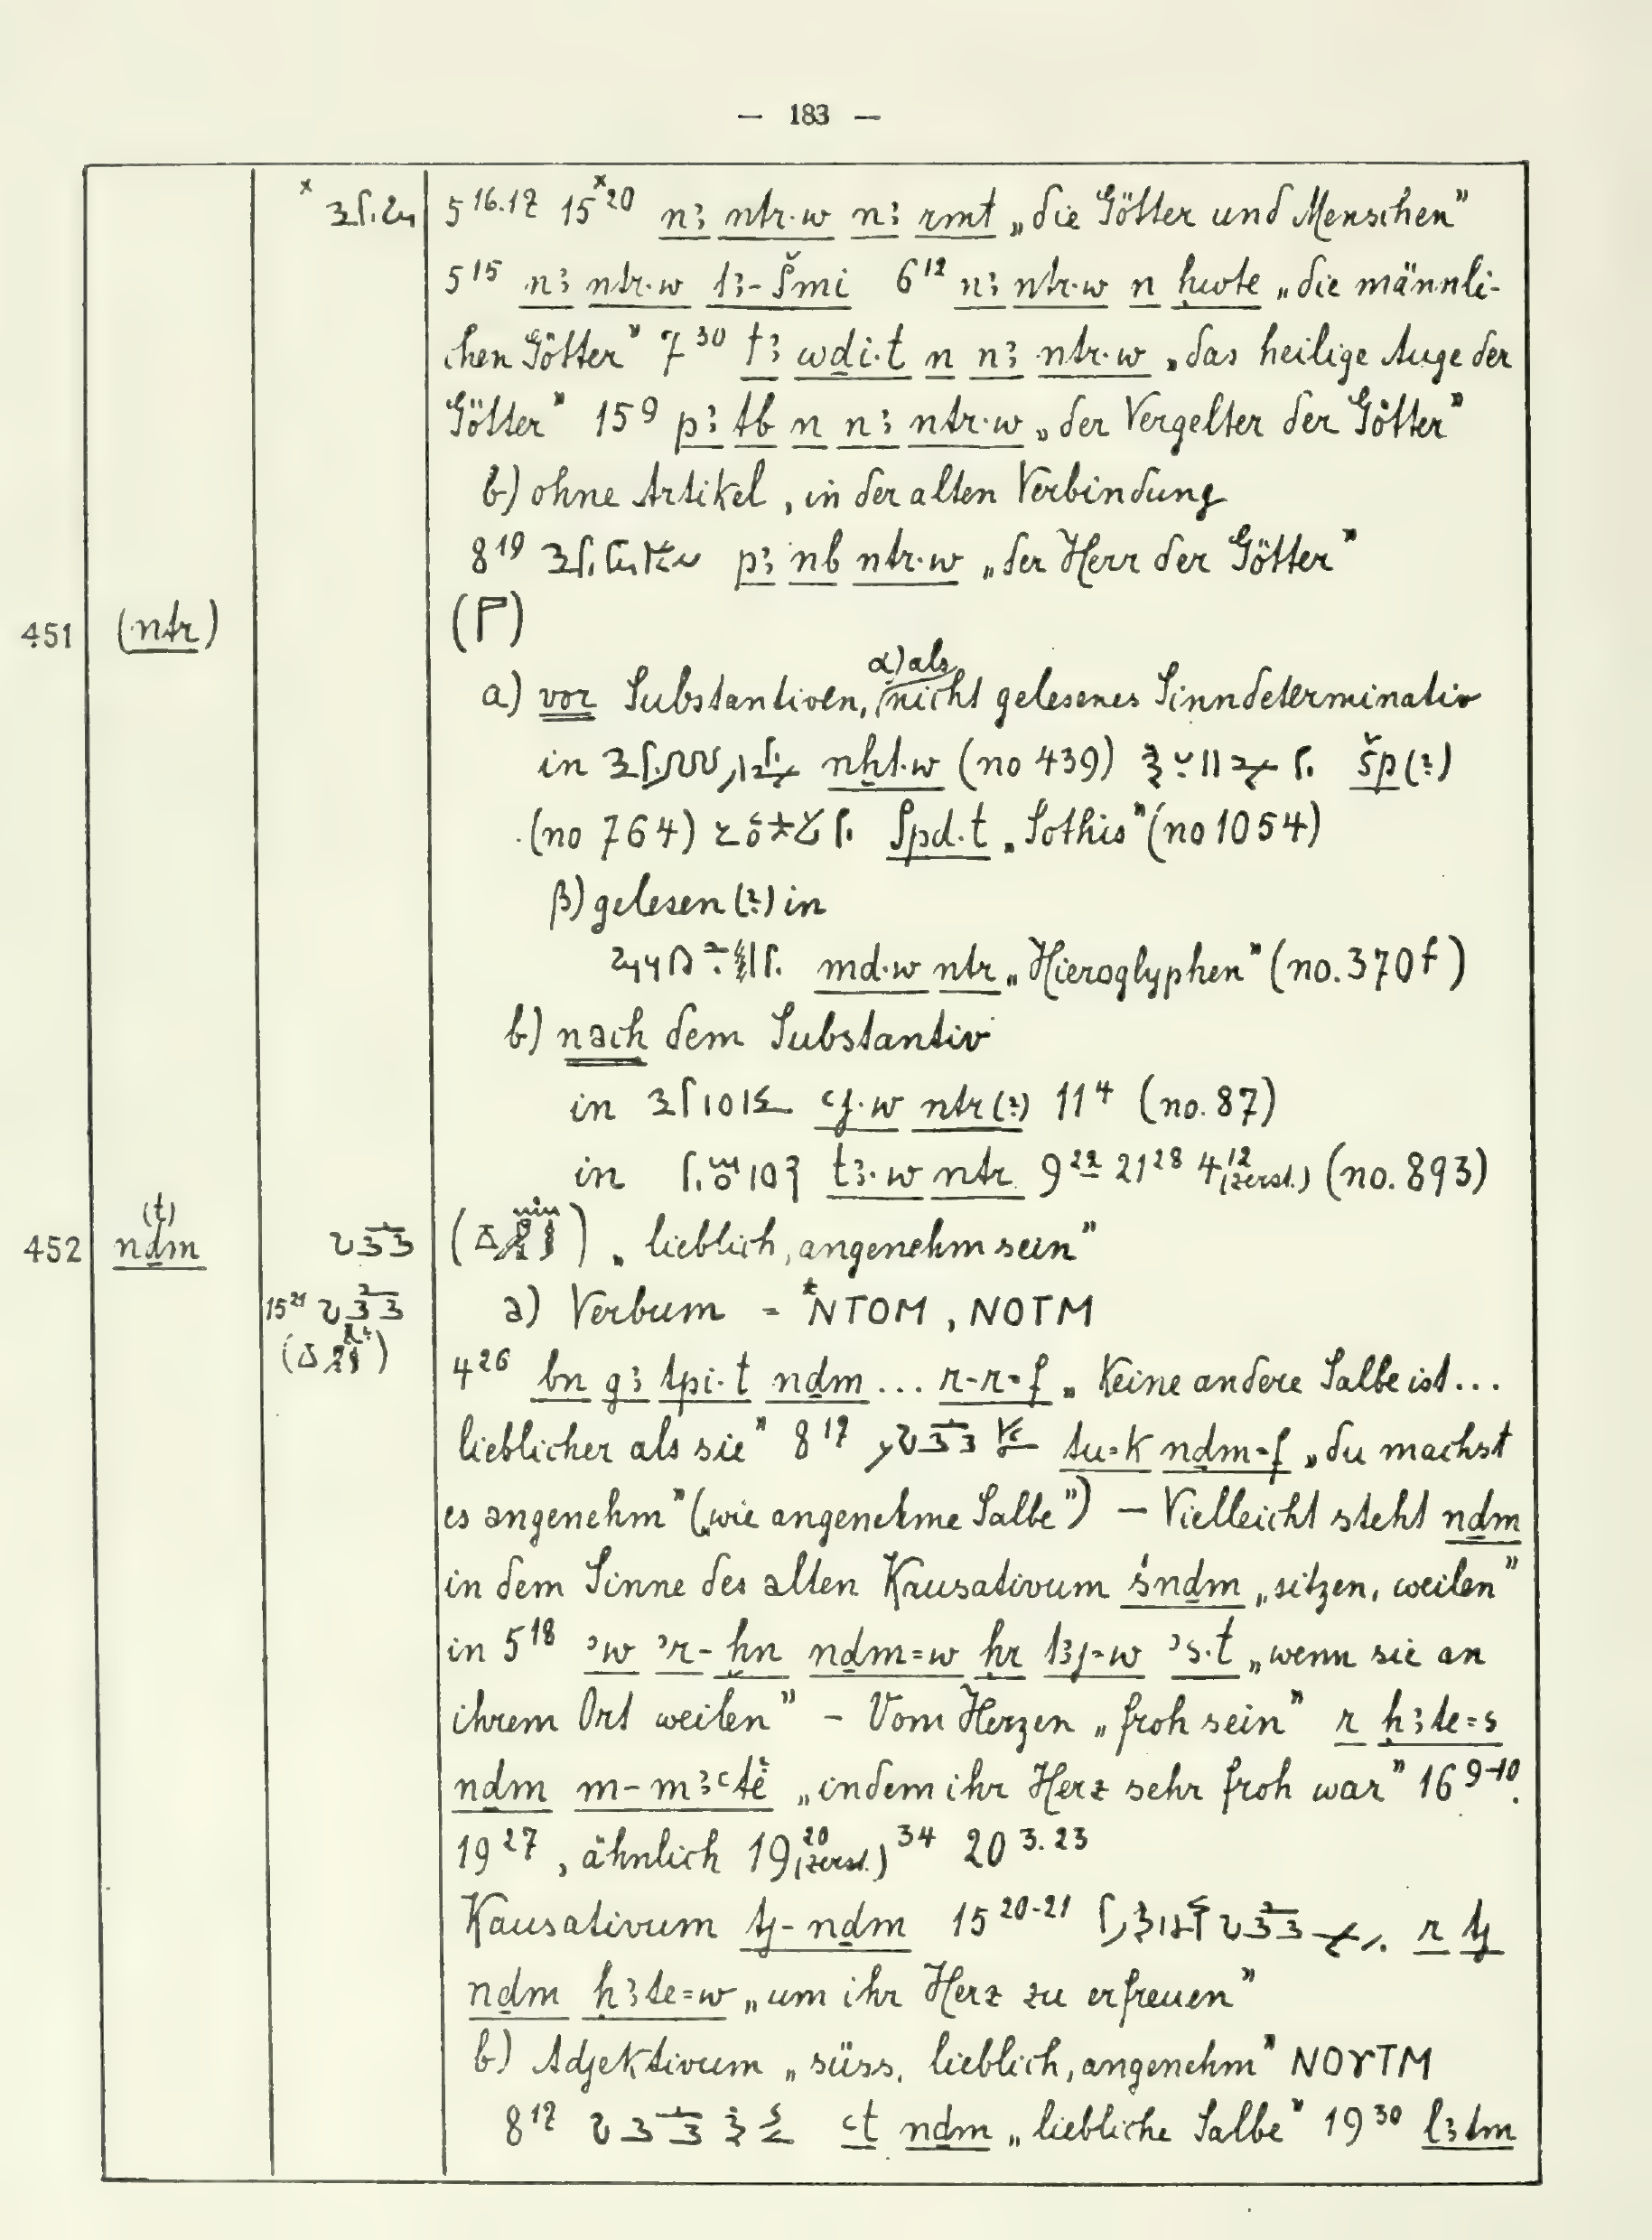 — 183 —
5 16.17 15 x20 nꜣ ntr·w nꜣ rmt „die Götter und Menschen"
5 15 nꜣ ntr·w tꜣ-šmi 6 12 nꜣ ntr·w n ḥwṱe „die männli-
chen Götter" 7 30 tꜣ wḏi·t n nꜣ ntr·w „das heilige Auge der
Götter" 15 9 pꜣ ṱb n nꜣ ntr·w „der Vergelter der Götter"
b) ohne Artikel, in der alten Verbindung
8 19 pꜣ nb ntr·w „der Herr der Götter"
451 (ntr) (𓊹)
a) vor Substantiven, α) als nicht gelesenes Sinndeterminativ
in nḫt·w (no 439) šp(?)
(no 764) Spd·t „Sothis" (no 1054)
β) gelesen (?) in
md·w ntr „Hieroglyphen" (no. 370 f)
b) nach dem Substantiv
in ntr(?) 11 4 (no. 87)
in tꜣ·w ntr 9 22 21 28 4 12 (zerst.) (no. 893)
452 (t) nḏm „lieblich, angenehm sein"
15 21 a) Verbum = *NTOM, NOTM
4 26 bn gꜣ tpi·t nḏm ... r-r=f „Keine andere Salbe ist ...
lieblicher als sie" 8 17 tu=k nḏm=f „du machst
es angenehm" („wie angenehme Salbe") — Vielleicht steht nḏm
in dem Sinne des alten Kausativum śnḏm „sitzen, weilen"
in 5 18 ꜥw ꜥr-ḫn nḏm=w ḥr tꜣj=w ꜥs·t „wenn sie an
ihrem Ort weilen" – Vom Herzen „froh sein" r ḥꜣṱe=s
nḏm m-mꜣꜥṱe „indem ihr Herz sehr froh war" 16 9-10.
19 27, ähnlich 19 20 (zerst.) 34 20 3.23
Kausativum ṱj-nḏm 15 20-21 r ṱj
nḏm ḥꜣṱe=w „um ihr Herz zu erfreuen"
b) Adjektivum „süss, lieblich, angenehm" NOϒTM
8 17 ꜥt nḏm „liebliche Salbe" 19 30 lꜣṱm